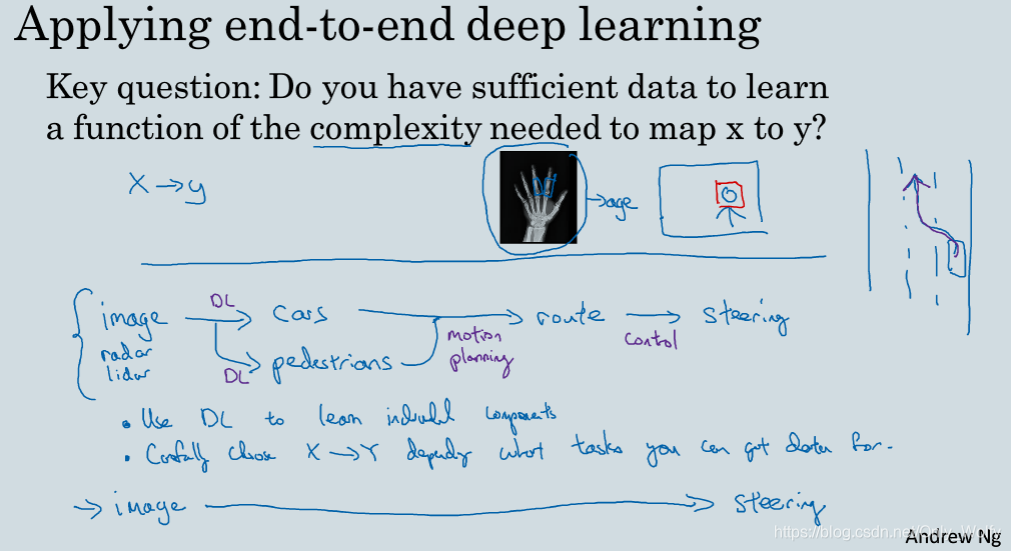 Applying end-to-end deep learning
Key question: Do you have sufficient data to learn
a function of the complexity needed to map x to y?
X → y
→ age
image
radar
lidar
DL
cars
DL
pedestrians
motion
planning
route
control
steering
• Use DL to learn individual components
• Carefully choose X → Y depending what tasks you can get data for.
→ image → steering
https://blog.csdn.net/
Andrew Ng